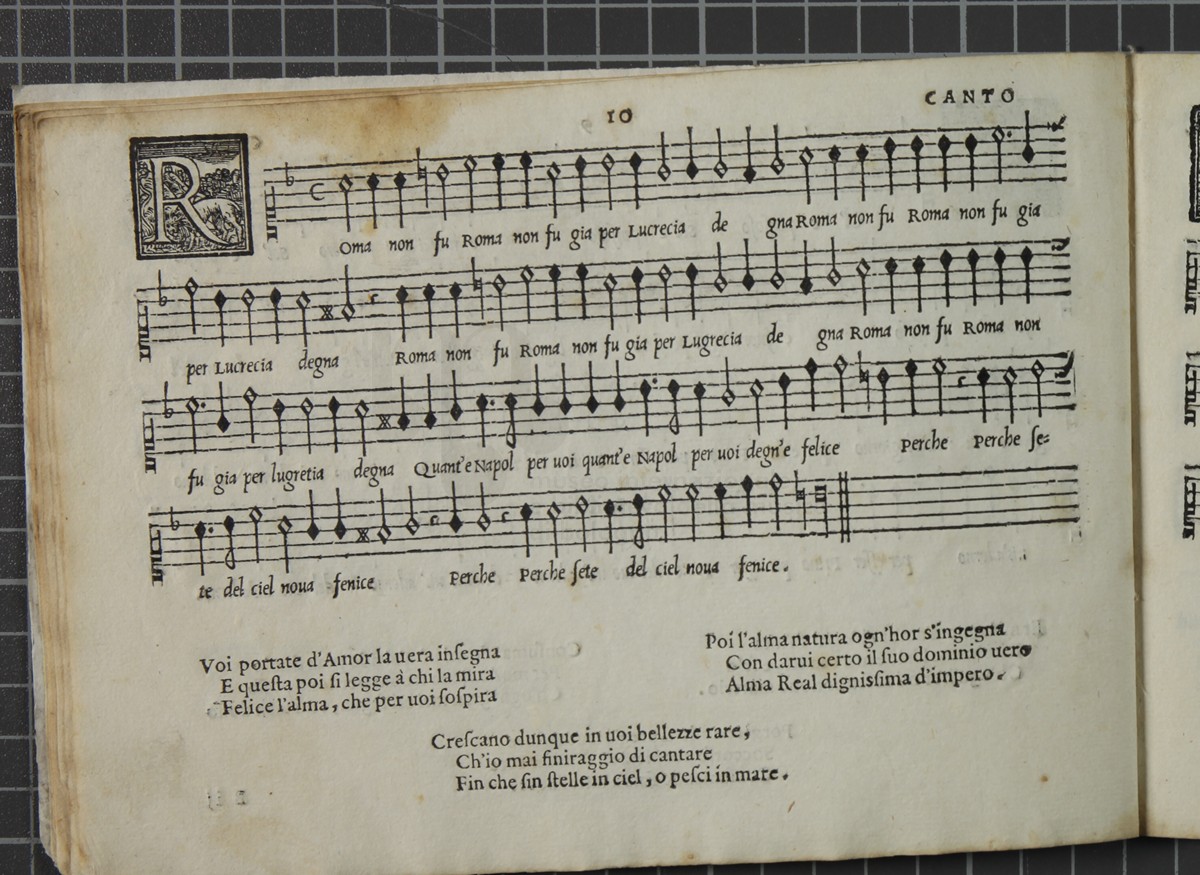 10
CANTO
ROma non fu Roma non fu gia per Lucrecia de gna Roma non fu Roma non fu gia
per Lucrecia degna Roma non fu Roma non fu gia per Lugrecia de gna Roma non fu Roma non
fu gia per lugretia degna Quant'e Napol per uoi quant'e Napol per uoi degn'e felice Perche Perche ſe=
te del ciel noua fenice Perche Perche ſete del ciel noua fenice.
Voi portate d'Amor la uera inſegna
E queſta poi ſi legge à chi la mira
Felice l'alma, che per uoi ſoſpira
Poi l'alma natura ogn'hor s'ingegna
Con darui certo il ſuo dominio uero
Alma Real digniſsima d'impero.
Creſcano dunque in uoi bellezze rare,
Ch'io mai finiraggio di cantare
Fin che ſin ſtelle in ciel, o peſci in mare.